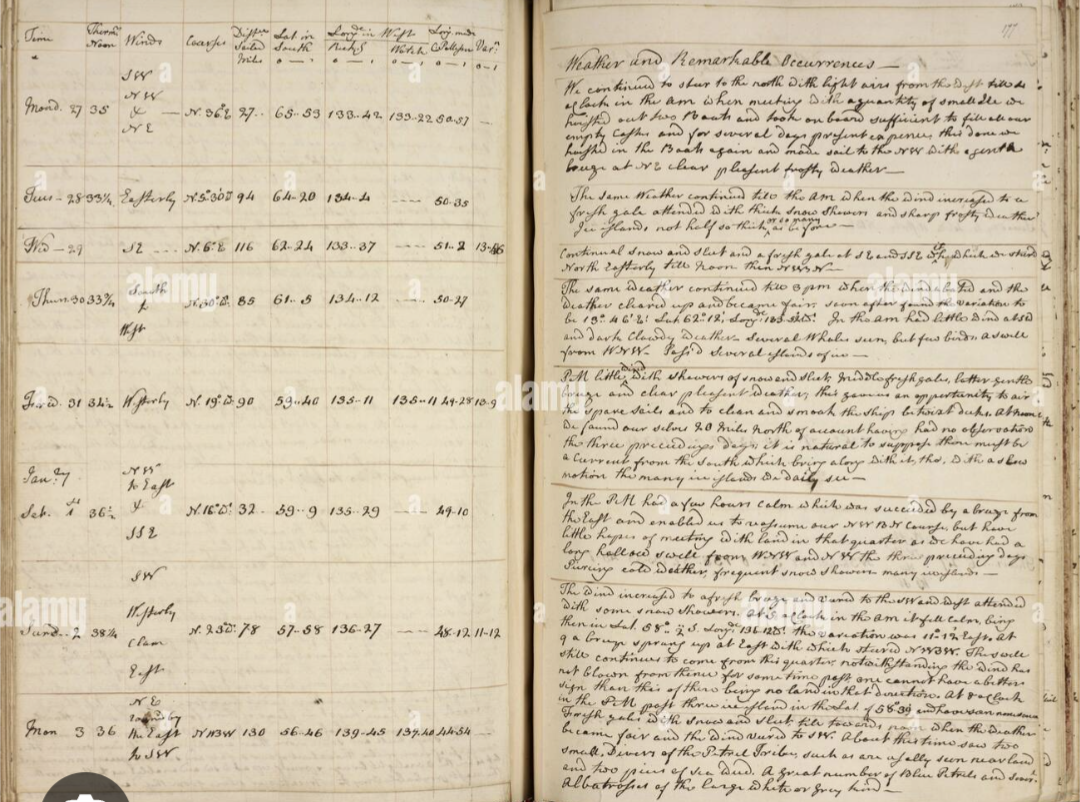 Time
Therm.r Noon
Winds
Course
Dist.ce Sailed Miles
Lat. in South
Long.de in West
Reck.g
Watch
Long. made C. Pallisser
Var.n
SW
NW
Mond. 27 35 & N 36 E 27 65-53 133-42 133-22 50-57
NE
Tues 28 33½ Easterly N 5°30 W 94 64-20 134-4 50-35
Wed 29 SE N 6 E 116 62-24 133-37 51-2
South
Thurs 30 33¾ & N 30 W 85 61-5 134-12 50-27
West
Fried. 31 34½ Westerly N 19 W 90 59-40 135-11 135-11 49-28 13-9
Jan.ry
NW
to East
Sat. 1 36½ & N 16 W 32 59-9 135-29 49-10
SSE
SW
Westerly
Sund. 2 38¼ Calm N 23 W 78 57-58 136-27 48-12 11-12
East
NE
round by
Mon 3 36 the East NWBW 130 56-46 139-45 137-40 44-54
to SW
177
Weather and Remarkable Occurrences
We continued to steer to the north with light airs from the West till
oclock in the AM when meeting with a quantity of small Ice we
hoisted out two Boats and took on board sufficient to fill all our
empty Casks and for several days present expence, this done we
hoisted in the Boats again and made sail to the NW with a gentle
breeze at NE clear pleasent frosty weather
The same Weather continued till the AM when the wind increased to a
fresh gale attended with thick Snow Showers and sharp frosty weather
Ice islands not half so thick or so many as before
Continual snow and sleet and a fresh gale at SE and SSE with which we steered
North Easterly till Noon then NWBN
The same weather continued till 8 pm when the wind abated and the
weather cleared up and became fair, soon after found the variation to
be 13° 46' E: Lat. 62° 12' Long.de In the AM had little wind
and dark Cloudy weather. Several Whales seen, but few birds, a swell
from WNW. Pass'd Several islands of ice
PM little wind with showers of snow and sleet. Middle fresh gales, latter gentle
breeze and clear pleasent weather, this gave us an oppertunity to air
the spare sails and to clean and smoak the Ship betwixt decks. At Noon
we found our selves 20 Miles North of account having had no observation
the three preceeding days, it is natural to suppose there must be
a current from the South which bring along with it, tho, with a slow
motion the many ice islands we daily see
In the PM had a few hours Calm which was succeeded by a breeze from
the East and enabled us to reassume our NWBN Course, but have
little hopes of meeting with land in that quarter as we have had a
long hallow swell from WNW and NW the three preceeding days
Piercing cold weather, frequent snow showers many ice islands
The wind increased to a fresh breeze and vered to the SW and West attended
with some snow showers. At oclock in the AM it fell calm, being
then in Lat. 58° 2' S. Long.de the variation was 11° 12' East. At
9 a breeze sprung up at East with which steered NWBW. The swell
still continues to come from this quarter, notwithstanding the wind has
not blown from thence for some time past, one cannot have a better
sign than this of there being no land in that direction. At 8 oClock
in the PM past three ice island in the Lat. of 58° 39'
Fresh gales with snow and sleet till towards noon when the weather
became fair and the wind vered to SW. About this time saw two
small Divers of the Petrel Tribe, such as are usally seen near land
and two pieces of sea weed. A great number of Blue Petrels and
Albatrosses of the large white or grey kind
alamy